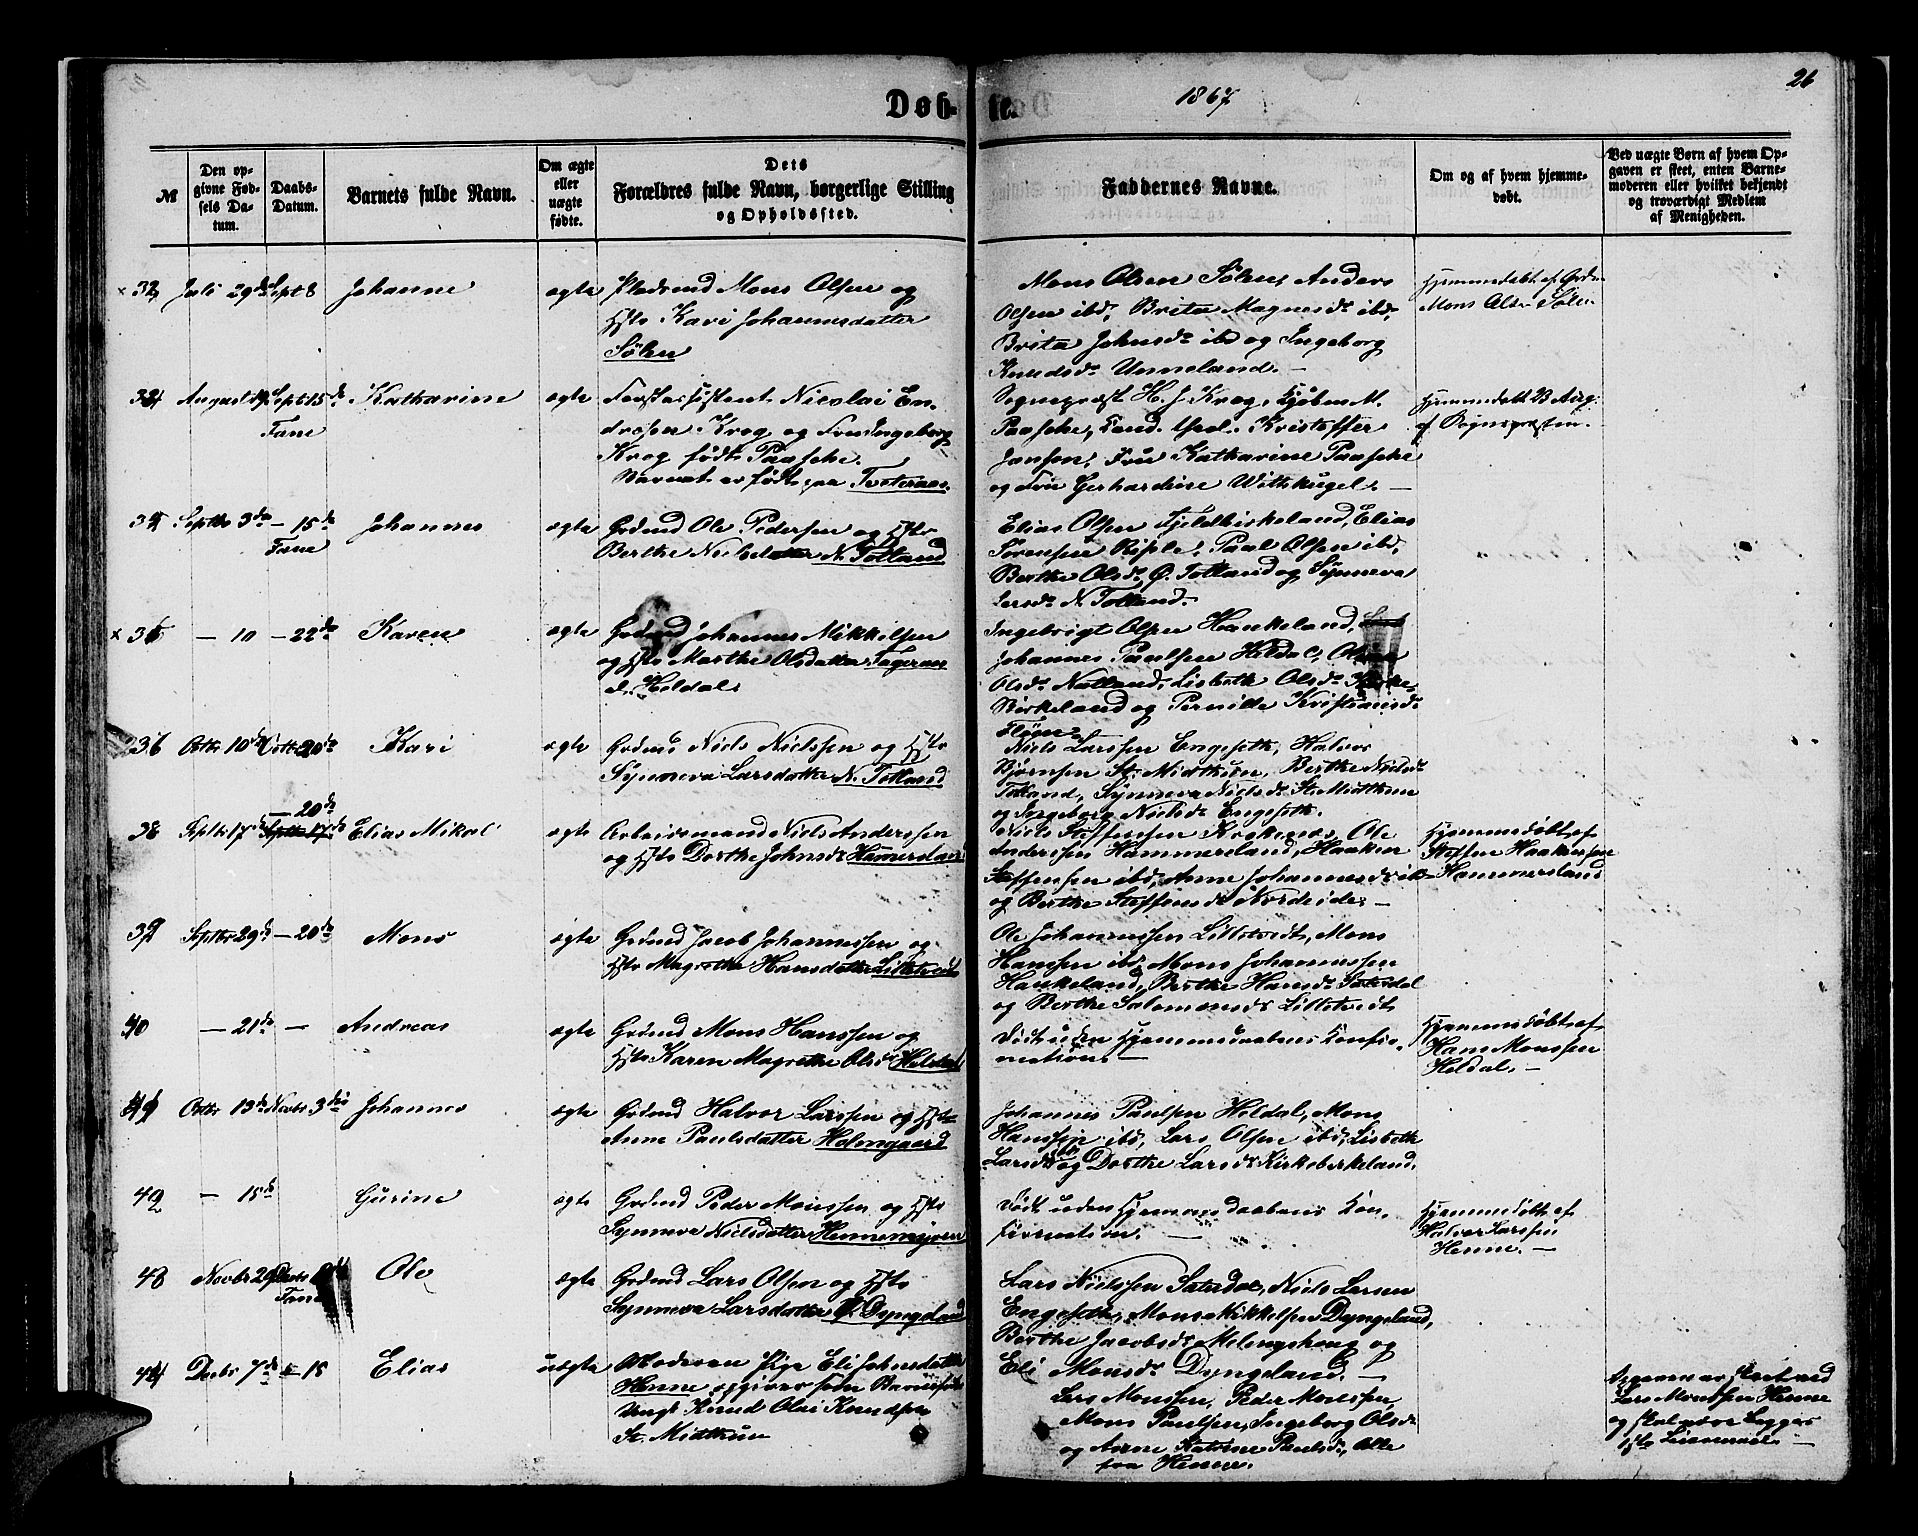 Døb-
te.
1867
26
№
Den op-
givne Fød-
sels Da-
tum.
Daabs-
Datum.
Barnets fulde Navn.
Om ægte
eller
uægte
fødte.
Dets
Forældres fulde Navn, borgerlige Stilling
og Opholdssted.
Faddernes Navne.
Om og af hvem hjemme-
døbt.
Ved uægte Børn af hvem Op-
gaven er skeet, enten Barne-
moderen eller hvilket bekjendt
og troværdigt Medlem
af Menigheden.
Juli 29de Sept 8 Johanne ægte Pladsmd Mons Olsen og
Hst Kari Johannesdatter
Sølen
Mons Olsen Sølen, Anders
Olsen ibd, Brita Magnesdr ibd,
Brita Johnsdr ibd og Ingeborg
Knudsdr Unneland. —
Hjemmedøbt af
Mons Olsen Sølen
August Sept 15de Katharine ægte Forstassistent Nicolai En-
Fane
dresen Krog og Fru Ingeborg
Krog født Paasche.
Barnet er født paa Tveteraas.
Sognepræst H. J. Krog, Kjøbm M.
Paasche, Cand. theol. Kristoffer
Janson, Fru Katharine Paasche
og Fru Gerhardine Wittkugel. —
Hjemmedøbt 23 Aug.
af Sognepræsten.
Septbr 3de — 15de Johannes ægte Grdmd Ole Pedersen og Hst
Fane
Berthe Nielsdatter N. Totland
Elias Olsen Fjeldbirkeland, Elias
Sørensen Riple, Paul Olsen ibd,
Berthe Olsdr Ø. Totland og Synneva
Larsdr N. Totland.
— 10 — 22de Karen ægte Grdmd Johannes Mikkelsen
og Hst Marthe Olsdatter
Heldal
Ingebrigt Olsen Haukeland,
Johannes Paulsen Heldal,
Olsdr Natland, Lisbeth Olsdr Kirke-
Birkeland og Pernille Kristiansdr
36 Octbr 10de Octbr 20de Kari ægte Grdmd Niels Nielssen og Hst
Synneva Larsdatter N. Totland
Niels Larssen Engeseth, Halvor
Bjørnsen St. Midthun, Berthe Nielsdr
Totland, Synneva Nielsdr St. Midthun
og Ingeborg Nielsdr Engeseth.
38 Septbr 17de — 20de Elias Mikal ægte Arbeidsmand Niels Anderssen
og Hst Dorthe Johnsdr Hamersland
Niels Steffensen Krokenæs, Ole
Anderssen Hammersland, Haaken
Steffensen ibd, Anne Johannesdr ibd
og Berthe Steffensdr Nordeide. —
Hjemmedøbt af
Steffen Haakenssen
Hammersland
39 Septbr 29de — 20de Mons ægte Grdmd Jacob Johannessen og
Hst Magrethe Hansdatter Littletvedt
Ole Johannessen Litletvedt, Mons
Hanssen ibd, Mons Johannessen
Haukeland, Berthe Hansdr Sætredal
og Berthe Salomonsdr Litletvedt
40 — 21de — Andreas ægte Grdmd Mons Hanssen og
Hst Karen Magrethe Olsdr Heldal
Død uden Hjemmedaabens Confir-
mation. —
Hjemmedøbt af
Hans Monssen
Heldal. —
41 Octbr 13de Novbr 3die Johannes ægte Grdmd Halvor Larssen og Hst
Anne Paulsdatter Holmgaard
Johannes Paulsen Heldal, Mons
Hanssen ibd, Lars Olsen ibd, Lisbeth
Larsdr ibd og Dorthe Larsdr Kirkebirkeland.
42 — 15de Gurine ægte Grdmd Peder Monssen og Hst
Synneve Nielsdatter Hennemyren
Død uden Hjemmedaabens Con-
firmation. —
Hjemmedøbt af
Halvor Larssen
Henne. —
43 Novbr Decbr Ole ægte Grdmd Lars Olsen og Hst
Fane
Synneva Larsdatter Ø. Dyngeland
Lars Nielssen Sætredal, Niels Larsen
Engeseth, Mons Mikkelsen Dyngeland,
Berthe Jacobsdr Melingshaug og
Eli Monsdr Dyngeland. —
44 Decbr 7de — 18 Elias uægte Moderen Pige Eli Johnsdatter
Henne opgiver som Barnefader
Ungk Knud Olai Knudsen
St. Midthun
Lars Monssen, Peder Monssen,
Mons Paulsen, Ingeborg Olsdr
og Anne Katrine Paulsdr, Alle
fra Henne.
Lars Monssen Henne
og skal være Begges
1ste Leiermaal. —